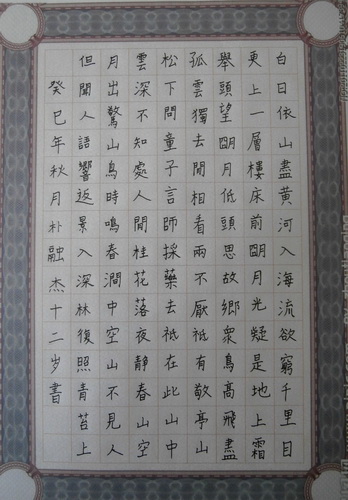 白日依山盡黃河入海流欲窮千里目
更上一層樓床前朙月光疑是地上霜
舉頭望朙月低頭思故鄉衆鳥高飛盡
孤雲獨去閒相看兩不厭祗有敬亭山
松下問童子言師採藥去祗在此山中
雲深不知處人閒桂花落夜靜春山空
月出驚山鳥時鳴春澗中空山不見人
但聞人語響返景入深林復照青苔上
癸巳年秋月朴融杰十二岁書